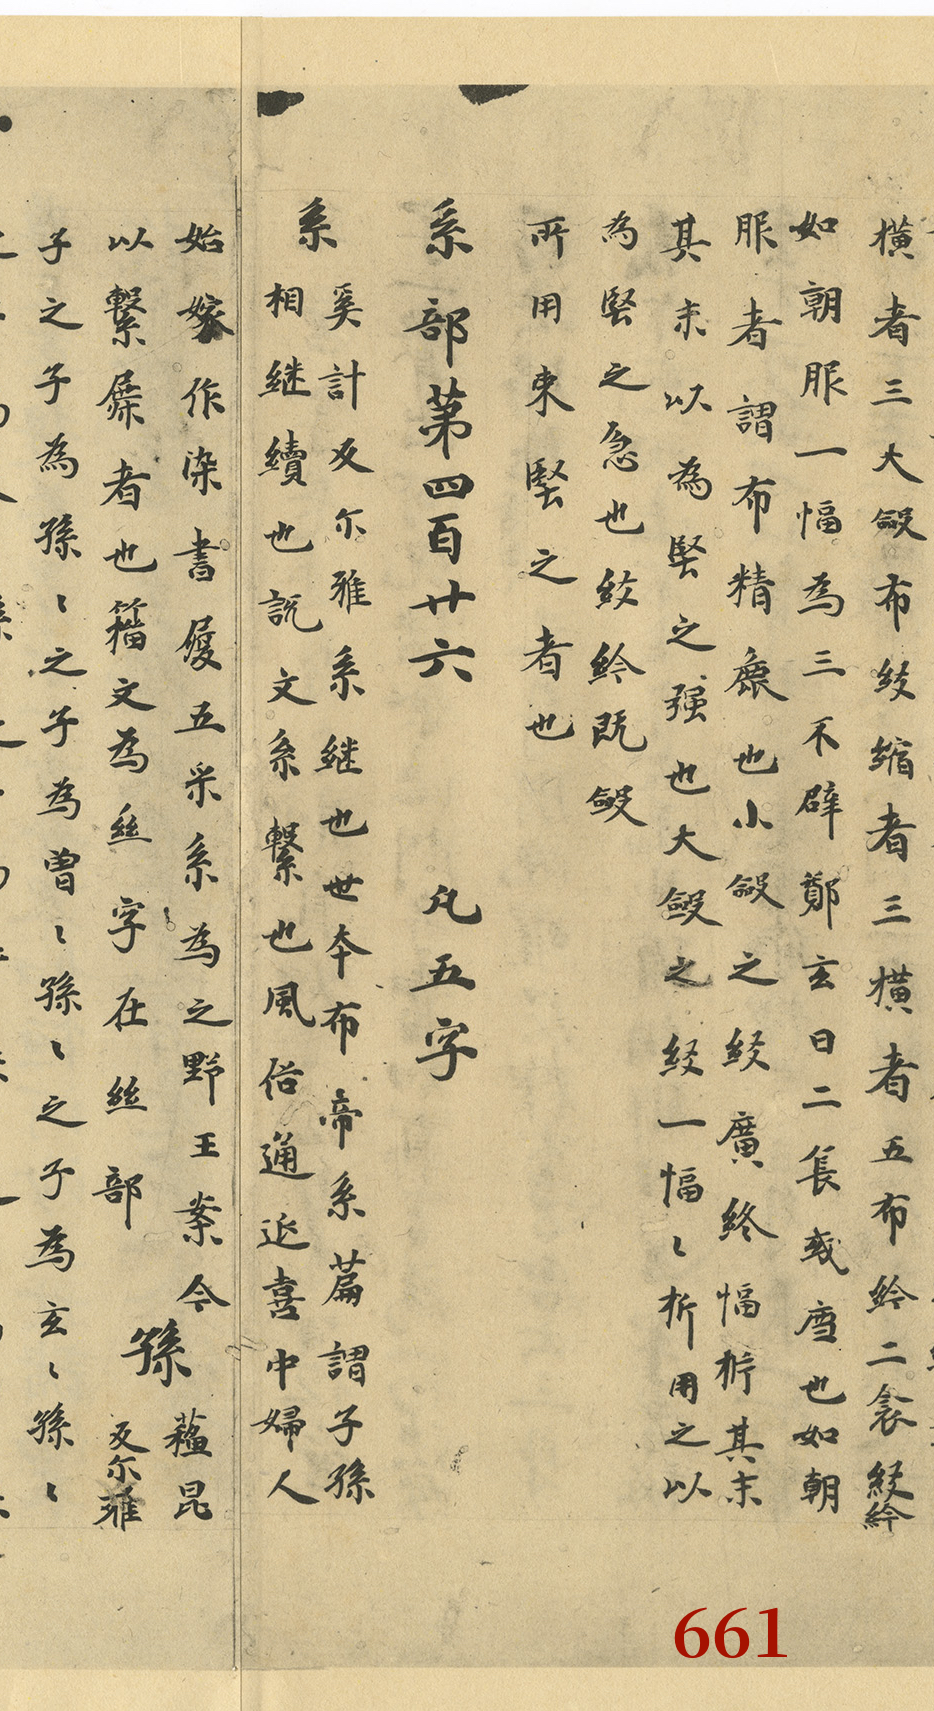 橫者三大斂布紟縮者三橫者五布紟二衾絞紟
如朝服一幅為三不辟鄭玄曰二長或雪也如朝
服者謂布精麁也小斂之絞廣終幅㭊其末
其末以為堅之强也大斂之絞一幅〻㭊用之以
為堅之急也絞紟既斂
所用束堅之者也
系部第四百廿六 凡五字
系 奚計反尓雅系継也世本布帝系篇謂子孫
相継續也說文系繫也風俗通近喜中婦人
始嫁作染書屐五采系為之野王案今
以繫屧者也籀文為絲字在絲部 孫 蘓昆
反尓雅
子之子為孫〻之子為曽〻孫〻之子為玄〻孫〻
661